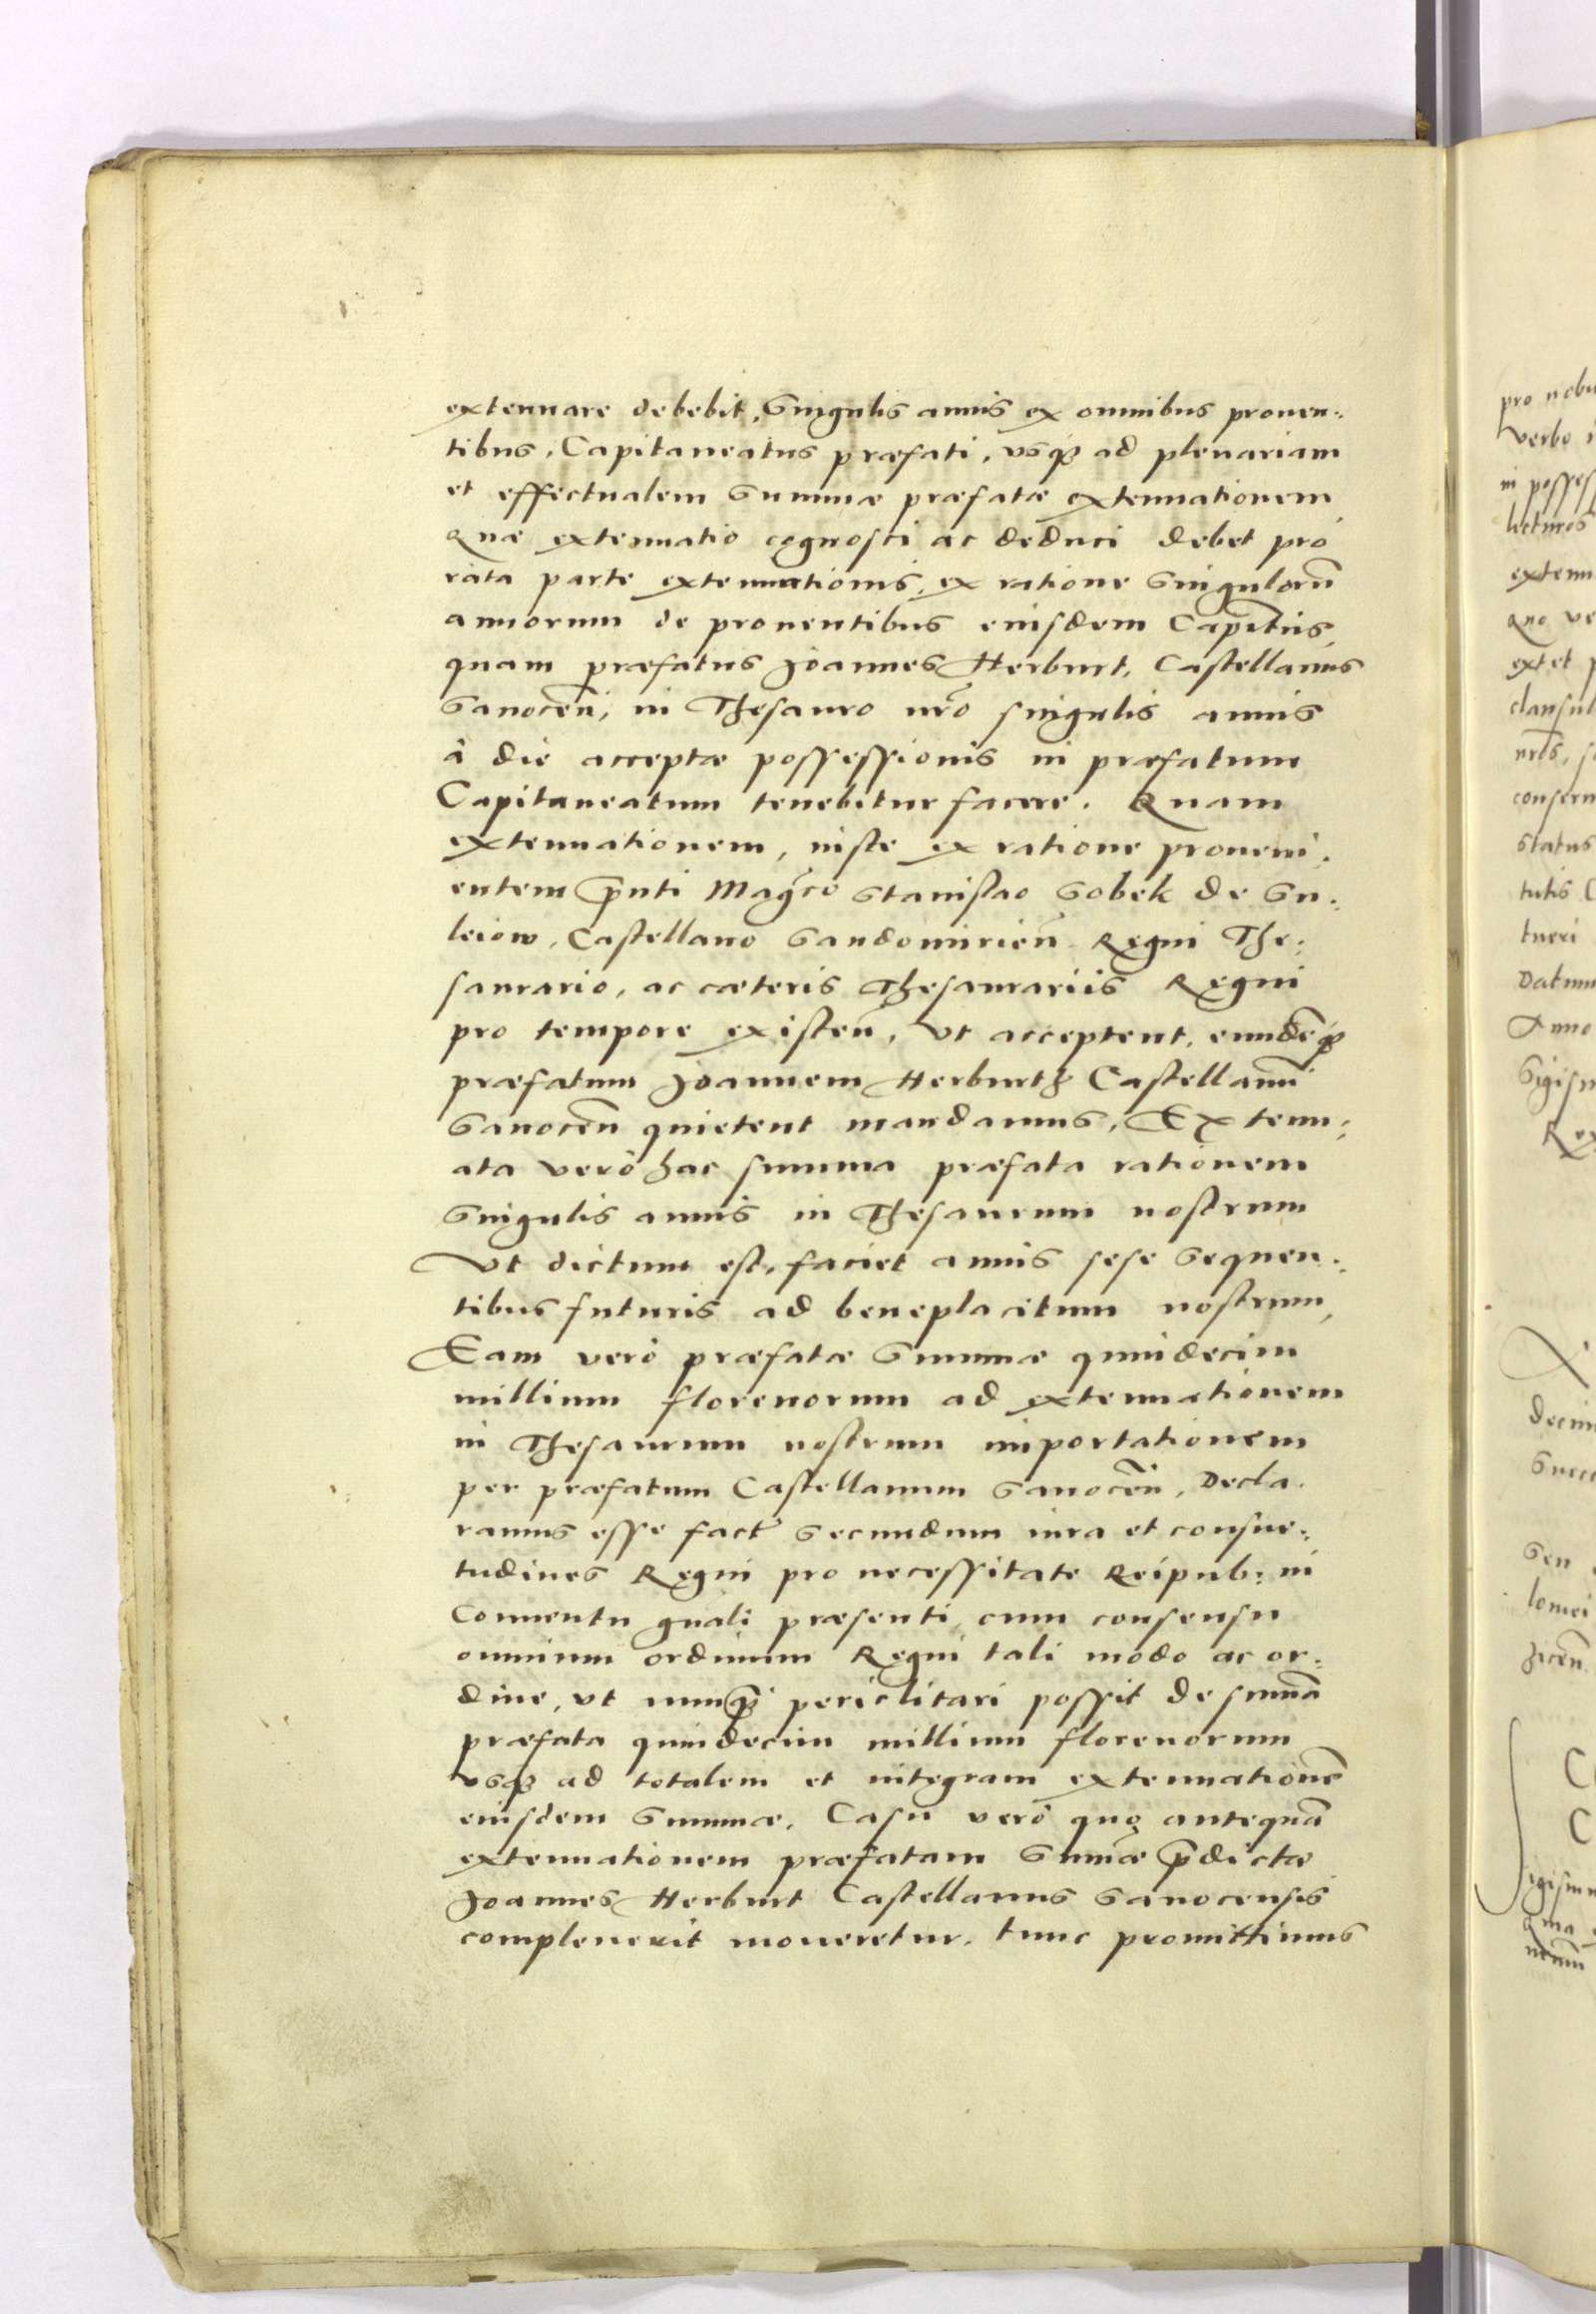 extenuare debebit, Singulis annis ex omnibus prouen:
tibus, Capitaneatus præfati, vsq; ad plenariam
et effectualem Summæ præfatæ extenuationem
Quæ extenuatio cognosci ac deduci debet pro
rata parte extenuationis, ex ratione Singulorū
annorum de prouentibus eiusdem Capnēus,
quam præfatus Joannes Herburt, Castellanus
Sanocen̄, in Thesauro nrō singulis annis
à die acceptæ possessionis in præfatum
Capitaneatum tenebitur facere. Quam
extenuationem, iuste ex ratione proueni:
entem p̄nti Magco Stanislao Sobek de Su:
leiow, Castellano Sandomirien̄ Regni The:
saurario, ac cæteris Thesaurariis Regni
pro tempore existen̄, Vt acceptent, eundēq;
præfatum Joannem Herburth Castellanū
Sanocen̄ quietent mandamus, Extenu:
ata verò hac summa præfata rationem
Singulis annis in Thesaurum nostrum
Vt dictum est, faciet annis sese sequen:
tibus futuris ad beneplacitum nostrum,
Eam verò præfatæ Summæ quindecim
millium florenorum ad extenuationem
in Thesaurum nostrum importationem
per præfatum Castellanum Sanocen̄, Decla:
ramus esse fact̄ secundum iura et consue:
tudines Regni pro necessitate Reipub: in
Conuentu gnāli præsenti, cum consensu
omnium ordinum Regni tali modo ac or:
dine, vt nunq̄ periclitari possit de sum̄a
præfata quindecim millium florenorum
vsq; ad totalem et integram extenuationē
eiusdem Summæ, Casu verò quo antequā
extenuationem præfatam Sum̄æ p̄dictæ
Joannes Herburt Castellanus Sanocensis
compleuerit moueretur, tunc promittimus
pro nobis
verbo
in possess
lecturos
extenu
quo ve
extet p
clausul
nrīs, s
conseru
status
tutis C
tueri
Datum
Anno
Sigism
Rex
decim
Succe
Seu
lomei
igism